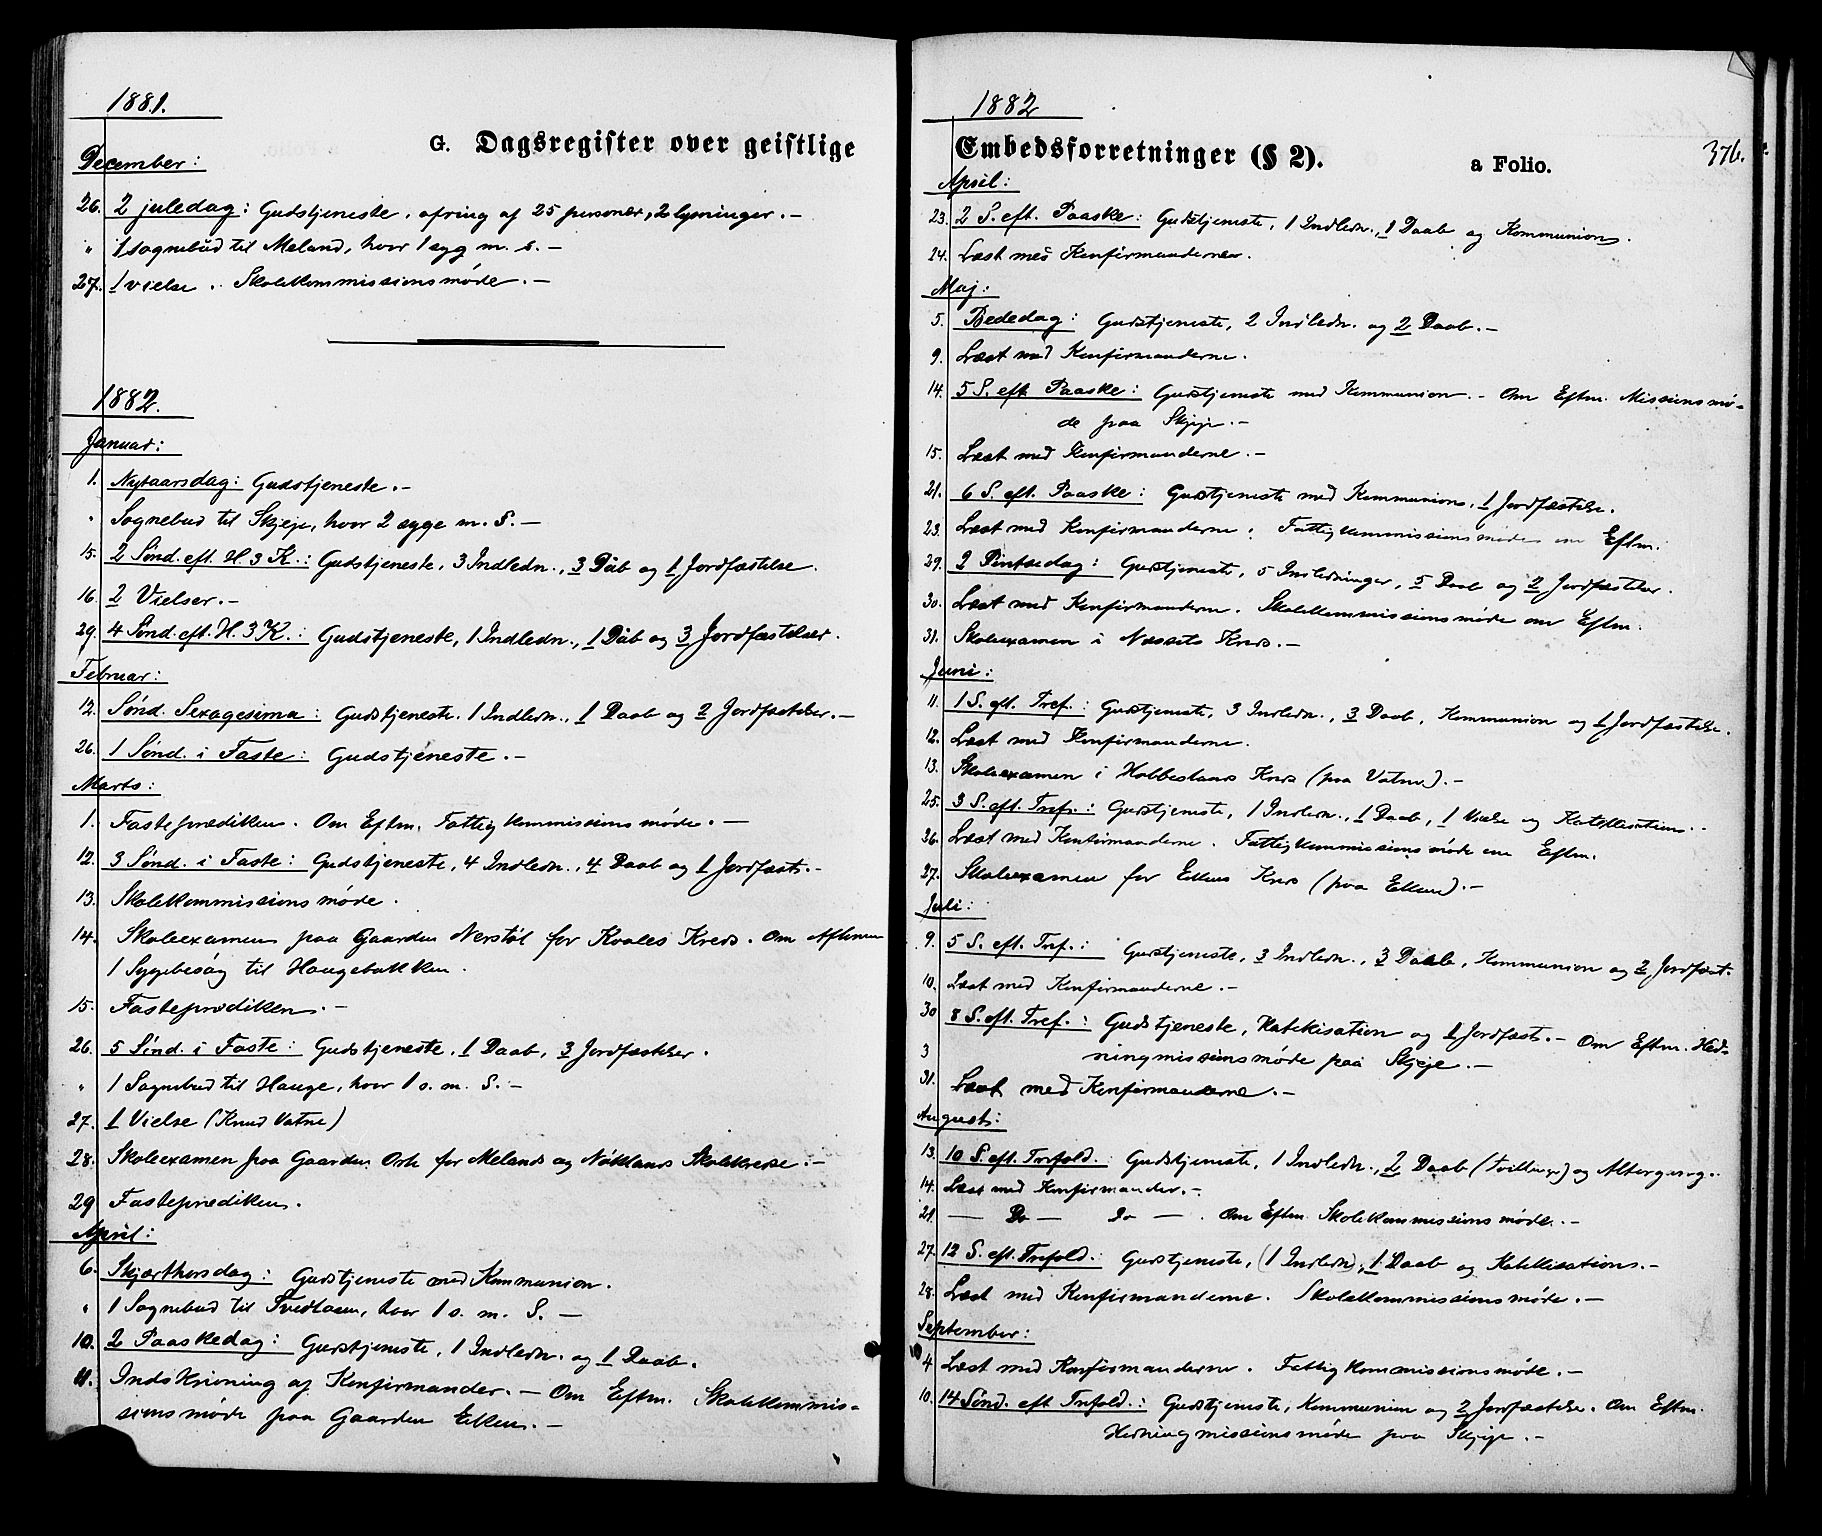 1881.
G. Dagsregister over geistlige
December:
26. 2 juledag: Gudstjeneste, ofring af 25 personer, 2 lysninger. –
" 1 sognebud til Meland, hvor 1 syg m. s. –
27. 1 vielse. Skolekommissionsmøde. –
1882.
Januar:
1. Nytaarsdag: Gudstjeneste. –
" Sognebud til Skjeje, hvor 2 syge m. S. –
15. 2 Sønd. eft. H. 3 K.: Gudstjeneste, 3 Indledn., 3 Dåb og 1 Jordfæstelse.
16. 2 Vielser. –
29. 4 Sønd. eft. H. 3 K.: Gudstjeneste, 1 Indledn., 1 Dåb og 3 Jordfæstelser.
Februar:
12. Sønd. Sexagesima: Gudstjeneste. 1 Indledn., 1 Daab og 2 Jordfæstelser. –
26. 1 Sønd. i Faste: Gudstjeneste. –
Marts:
1. Fasteprædiken. Om Eftm. Fattigkommissionsmøde. –
12. 3 Sønd. i Faste: Gudstjeneste, 4 Indledn., 4 Daab og 1 Jordfæsts. –
13. Skolekommissionsmøde.
14. Skoleexamen paa Gaarden Nerstøl for Kvales Kreds. Om Aftenen
1 Sygebesøg til Haugebakken.
15. Fasteprædiken. –
26. 5 Sønd. i Faste: Gudstjeneste, 1 Daab, 3 Jordfæstelser.
" 1 Sognebud til Hauge, hvor 1 s. m. S. –
27. 1 Vielse (Knud Vatne)
28. Skoleexamen paa Gaarden Orte for Melands og Nøklands Skolekredse. –
29 Fasteprædiken.
April:
6. Skjærthorsdag: Gudstjeneste med Kommunion.
" 1 Sognebud til Tvedtaasen, hvor 1 s. m. S. –
10. 2 Paaskedag: Gudstjeneste, 1 Indledn. og 1 Daab.
11. Indskrivning af Konfirmander. – Om Eftm. Skolekommis-
sionsmøde paa Gaarden Eiken. –
1882
Embedsforretninger (§ 2).
a Folio.
376.
April:
23. 2 S. eft. Paaske: Gudstjeneste, 1 Indledn., 1 Daab og Kommunion.
24. Læst med Konfirmanderne.
Maj:
5. Bededag: Gudstjeneste, 2 Indledn. og 2 Daab. –
9. Læst med Konfirmanderne.
14. 5 S. eft Paaske: Gudstjeneste med Kommunion. – Om Eftm. Missionsmø-
de paa Skjeje. –
15. Læst med Konfirmanderne. –
21. 6 S. eft. Paaske: Gudstjeneste med Kommunion, 1 Jordfæstelse.
23. Læst med Konfirmanderne. Fattigkommissionsmøde om Eftm.
29. 2 Pintsedag: Gudstjeneste, 5 Indledninger, 5 Daab og 2 Jordfæstelser.
30. Læst med Konfirmanderne. Skolekommissionsmøde om Eftm.
31. Skoleexamen i Næssets Kreds. –
Juni:
11. 1 S. eft. Tref.: Gudstjeneste, 3 Indledn., 3 Daab, Kommunion og 1 Jordfæstelse.
12. Læst med Konfirmanderne.
13. Skoleexamen i Hobbeslands Kreds (paa Vatne). –
25. 3 S. eft. Tref.: Gudstjeneste, 1 Indledn., 1 Daab, 1 Vielse og Katekisation.
26. Læst med Konfirmanderne. Fattigkommissionsmøde om Eftm.
27. Skoleexamen for Eikens Kreds (paa Eiken). –
Juli:
9. 5 S. eft. Tref.: Gudstjeneste, 3 Indledn., 3 Daab, Kommunion og 2 Jordfæst.
10. Læst med Konfirmanderne. –
30 8 S. eft. Tref.: Gudstjeneste, Katekisation og 1 Jordfæsts. – Om Eftm. Hed-
3 ningmissionsmøde paa Skjeje. –
31. Læst med Konfirmanderne. –
August:
13. 10 S. eft. Trefold.: Gudstjeneste, 1 Indledn., 2 Daab (Tvillinge) og Altergang.
14. Læst med Konfirmander. –
21. — Do — Do — . Om Eftm. Skolekommissionsmøde. –
27. 12 S. eft. Trefold.: Gudstjeneste, (1 Indledn), 1 Daab og Katekisation. –
28. Læst med Konfirmanderne. Skolekommissionsmøde. –
September:
4 Læst med Konfirmanderne. Fattigkommissionsmøde. –
10. 14 Sønd. eft Trefold.: Gudstjeneste, Kommunion og 2 Jordfæstelse. Om Eftm.
Hedningmissionsmøde paa Skjeje. –